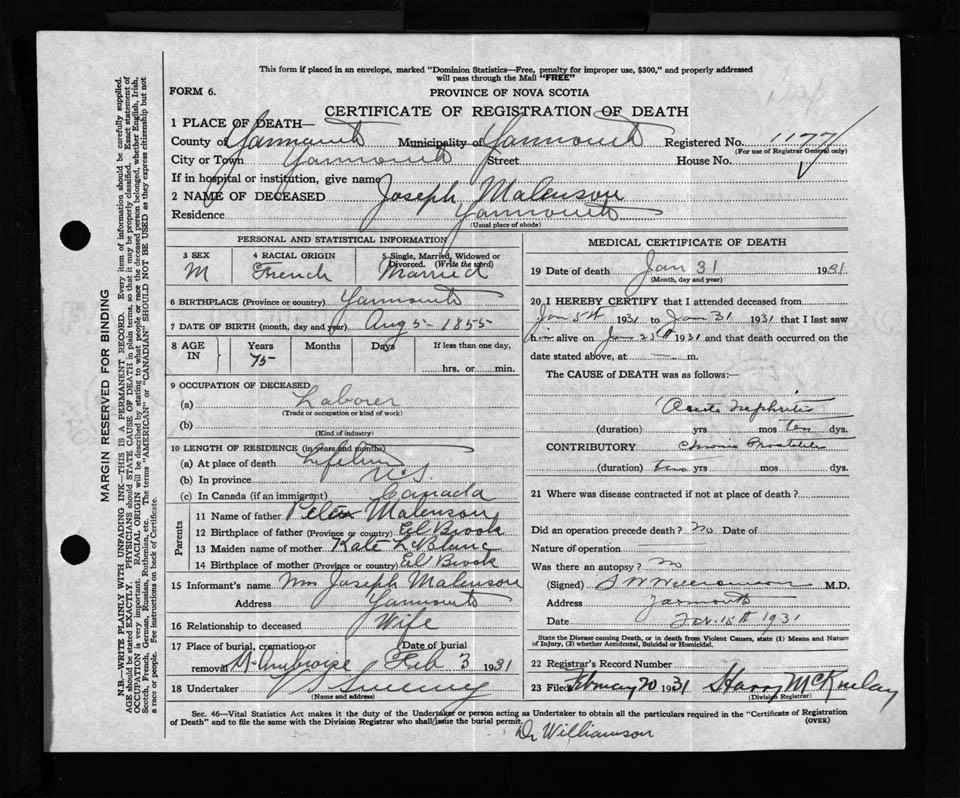 This form if placed in an envelope, marked "Dominion Statistics—Free, penalty for improper use, $300," and properly addressed
will pass through the Mail "FREE"
FORM 6.
PROVINCE OF NOVA SCOTIA
CERTIFICATE OF REGISTRATION OF DEATH
1 PLACE OF DEATH—
County of Yarmouth Municipality of Yarmouth Registered No. 1177
(For use of Registrar General only)
City or Town Yarmouth Street House No.
If in hospital or institution, give name
2 NAME OF DECEASED Joseph Malenson
Residence Yarmouth
(Usual place of abode)
PERSONAL AND STATISTICAL INFORMATION
3 SEX 4 RACIAL ORIGIN 5 Single, Married, Widowed or
Divorced. (Write the word)
M French Married
6 BIRTHPLACE (Province or country) Yarmouth
7 DATE OF BIRTH (month, day and year) Aug 5 - 1855
8 AGE IN Years Months Days If less than one day,
75 hrs. or min.
9 OCCUPATION OF DECEASED
(a) Laborer
(Trade or occupation or kind of work)
(b)
(Kind of industry)
10 LENGTH OF RESIDENCE (in years and months)
(a) At place of death Lifetime
(b) In province N.S.
(c) In Canada (if an immigrant) Canada
Parents
11 Name of father Peter Malenson
12 Birthplace of father (Province or country) Eel Brook
13 Maiden name of mother Kate LeBlanc
14 Birthplace of mother (Province or Country) Eel Brook
15 Informant's name Mrs Joseph Malenson
Address Yarmouth
16 Relationship to deceased Wife
17 Place of burial, cremation or Date of burial
removal St Ambroise Feb 3 1931
18 Undertaker Sweeny
(Name and address)
MEDICAL CERTIFICATE OF DEATH
19 Date of death Jan 31 1931
(Month, day and year)
20 I HEREBY CERTIFY that I attended deceased from
Jan 5th 1931 to Jan 31 1931 that I last saw
him alive on Jan 25th 1931 and that death occurred on the
date stated above, at — m.
The CAUSE of DEATH was as follows:—
Acute Nephritis
(duration) yrs mos ten dys.
CONTRIBUTORY Chronic Prostatitis
(duration) two yrs mos. dys.
21 Where was disease contracted if not at place of death?
Did an operation precede death? No Date of
Nature of operation
Was there an autopsy? no
(Signed) Williamson M.D.
Address Yarmouth
Date Feb. 15th 1931
State the Disease causing Death, or in death from Violent Causes, state (1) Means and Nature
of Injury, (2) whether Accidental, Suicidal or Homicidal.
22 Registrar's Record Number
23 Filed February 20 1931 Harry McKinlay
(Division Registrar)
Sec. 46—Vital Statistics Act makes it the duty of the Undertaker or person acting as Undertaker to obtain all the particulars required in the "Certificate of Registration
of Death" and to file the same with the Division Registrar who shall issue the burial permit.
(OVER)
Dr Williamson
MARGIN RESERVED FOR BINDING
N.B.—WRITE PLAINLY WITH UNFADING INK—THIS IS A PERMANENT RECORD. Every item of information should be carefully supplied.
AGE should be stated EXACTLY. PHYSICIANS should STATE CAUSE OF DEATH in plain terms, so that it may be properly classified. Exact statement of
OCCUPATION is very important. RACIAL ORIGIN will be described by stating to what people or race the deceased person belonged, whether English, Irish,
Scotch, French, German, Russian, Ruthenian, etc. The terms "AMERICAN" or "CANADIAN" SHOULD NOT BE USED as they express citizenship but not
a race or people. See instructions on back of Certificate.